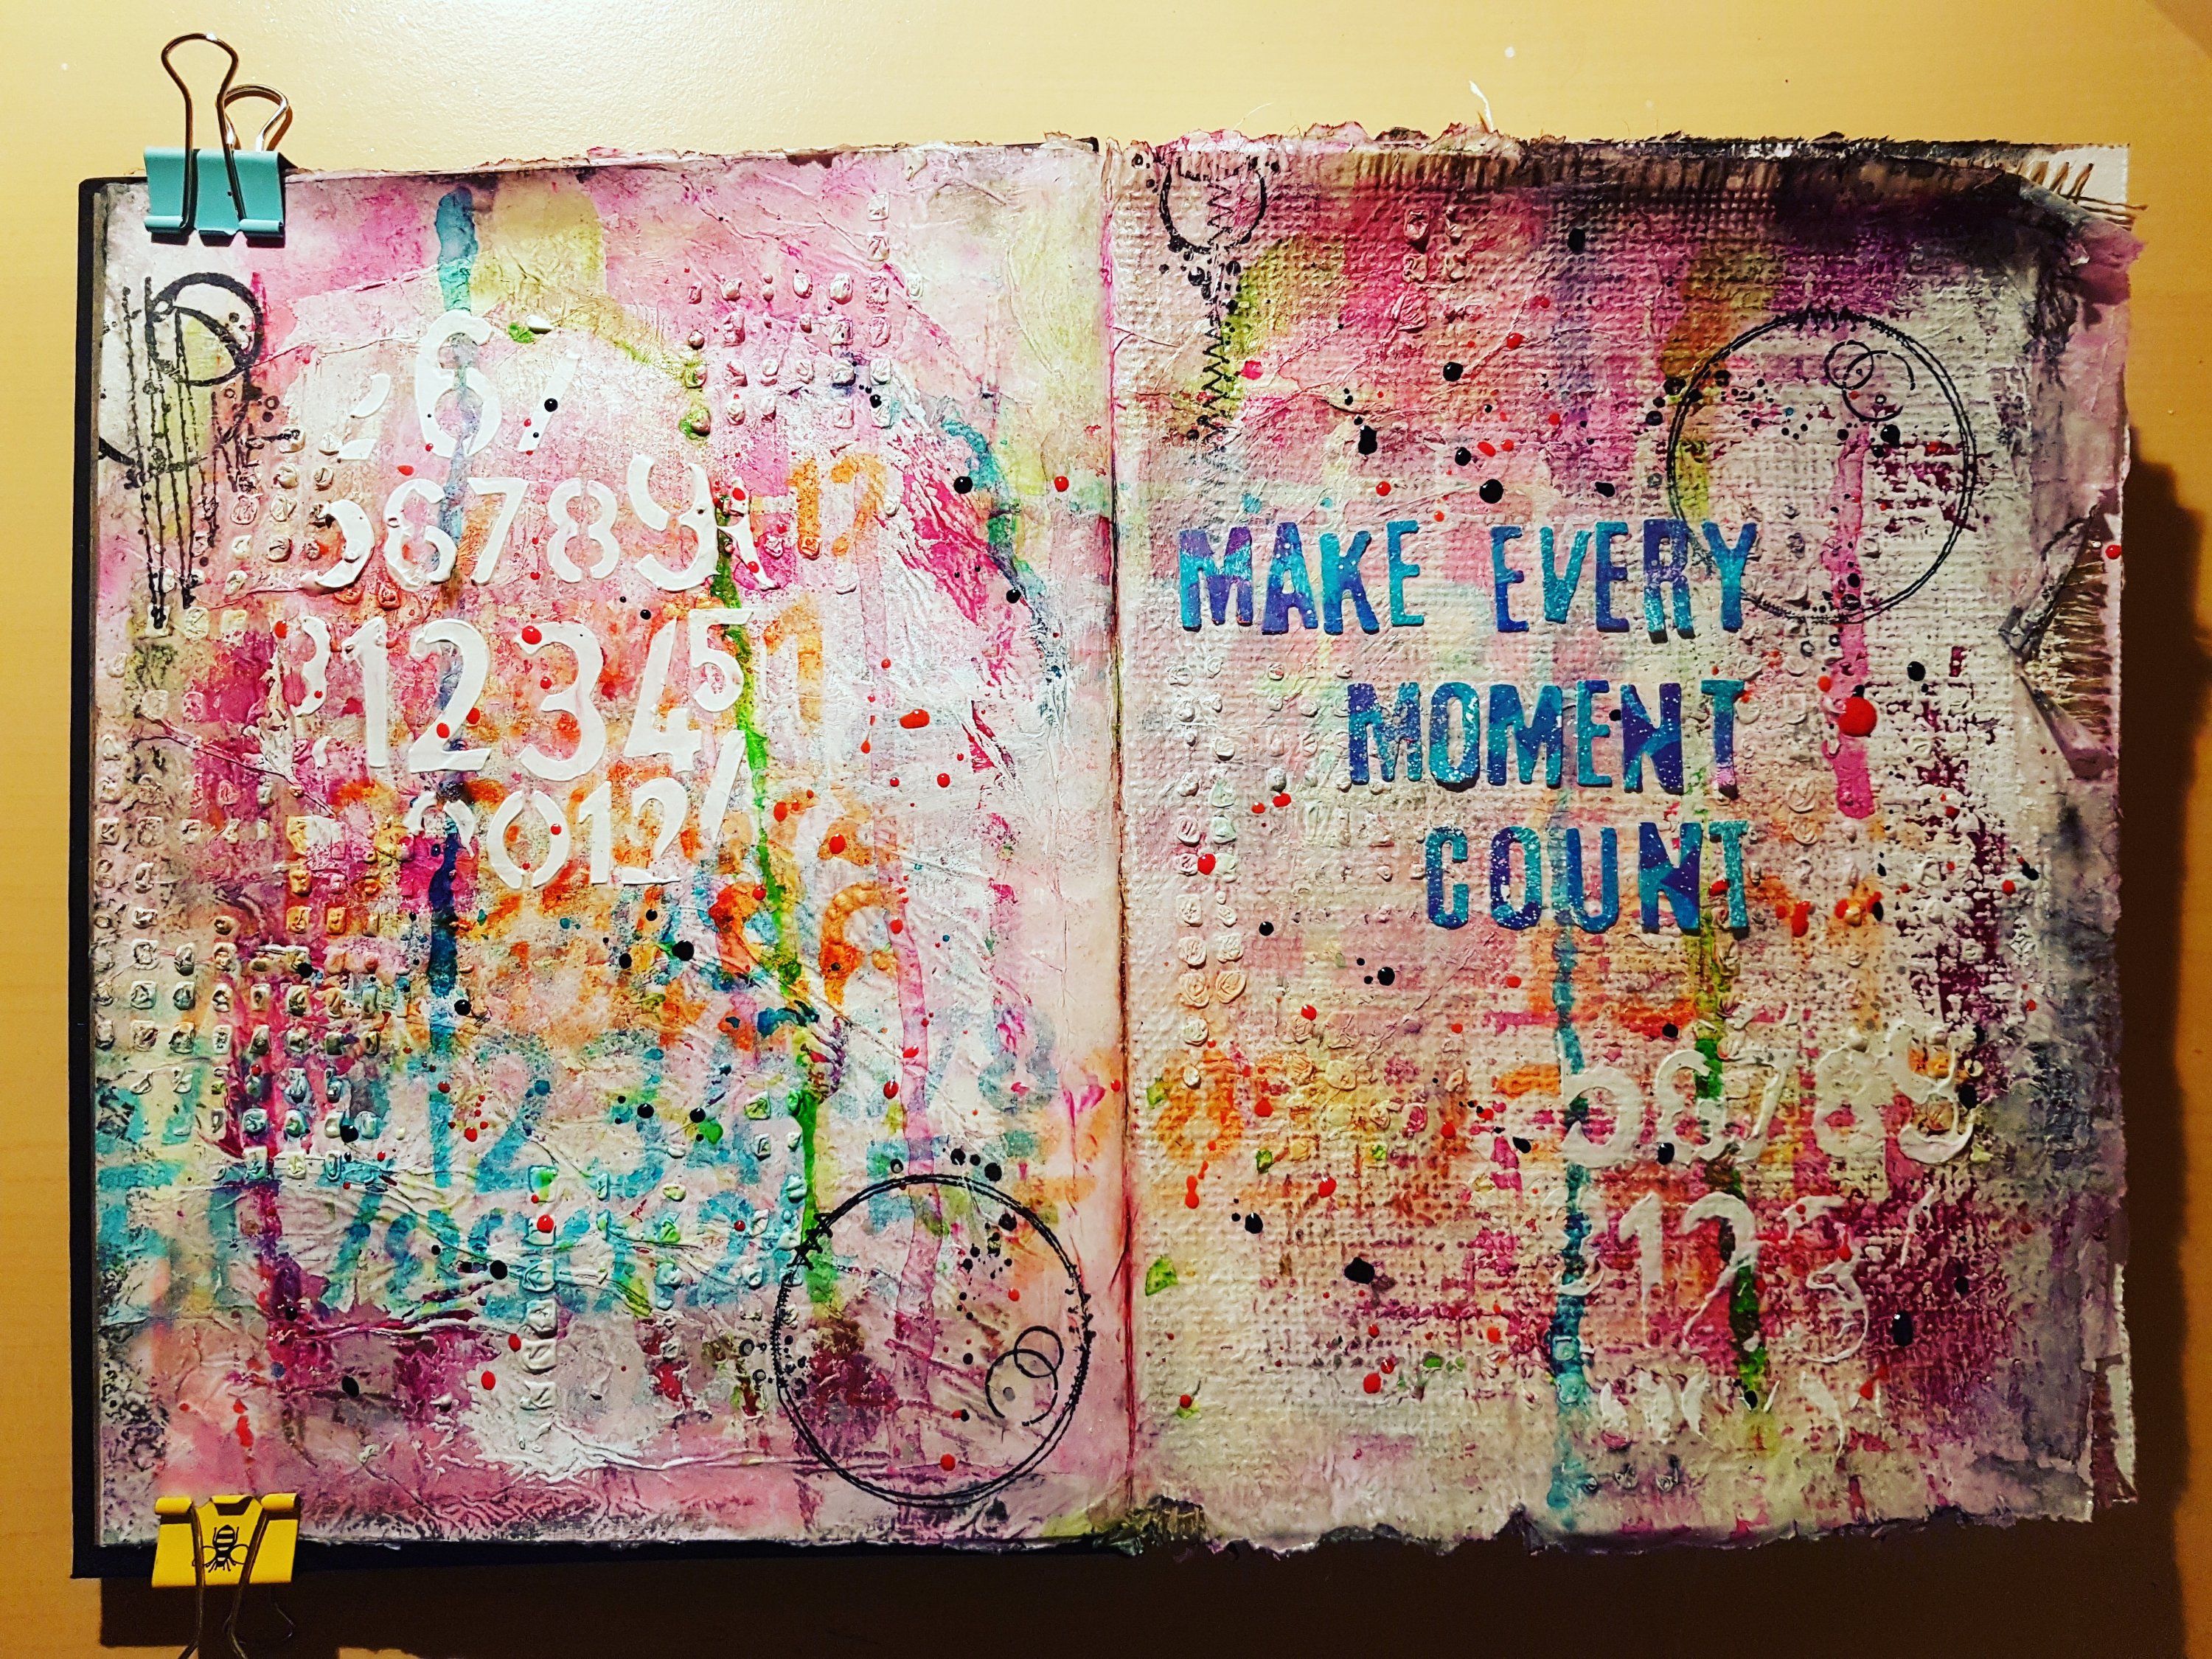 67
56789
12345
0012
12
1
6
1234
MAKE EVERY
MOMENT
COUNT
56789
123